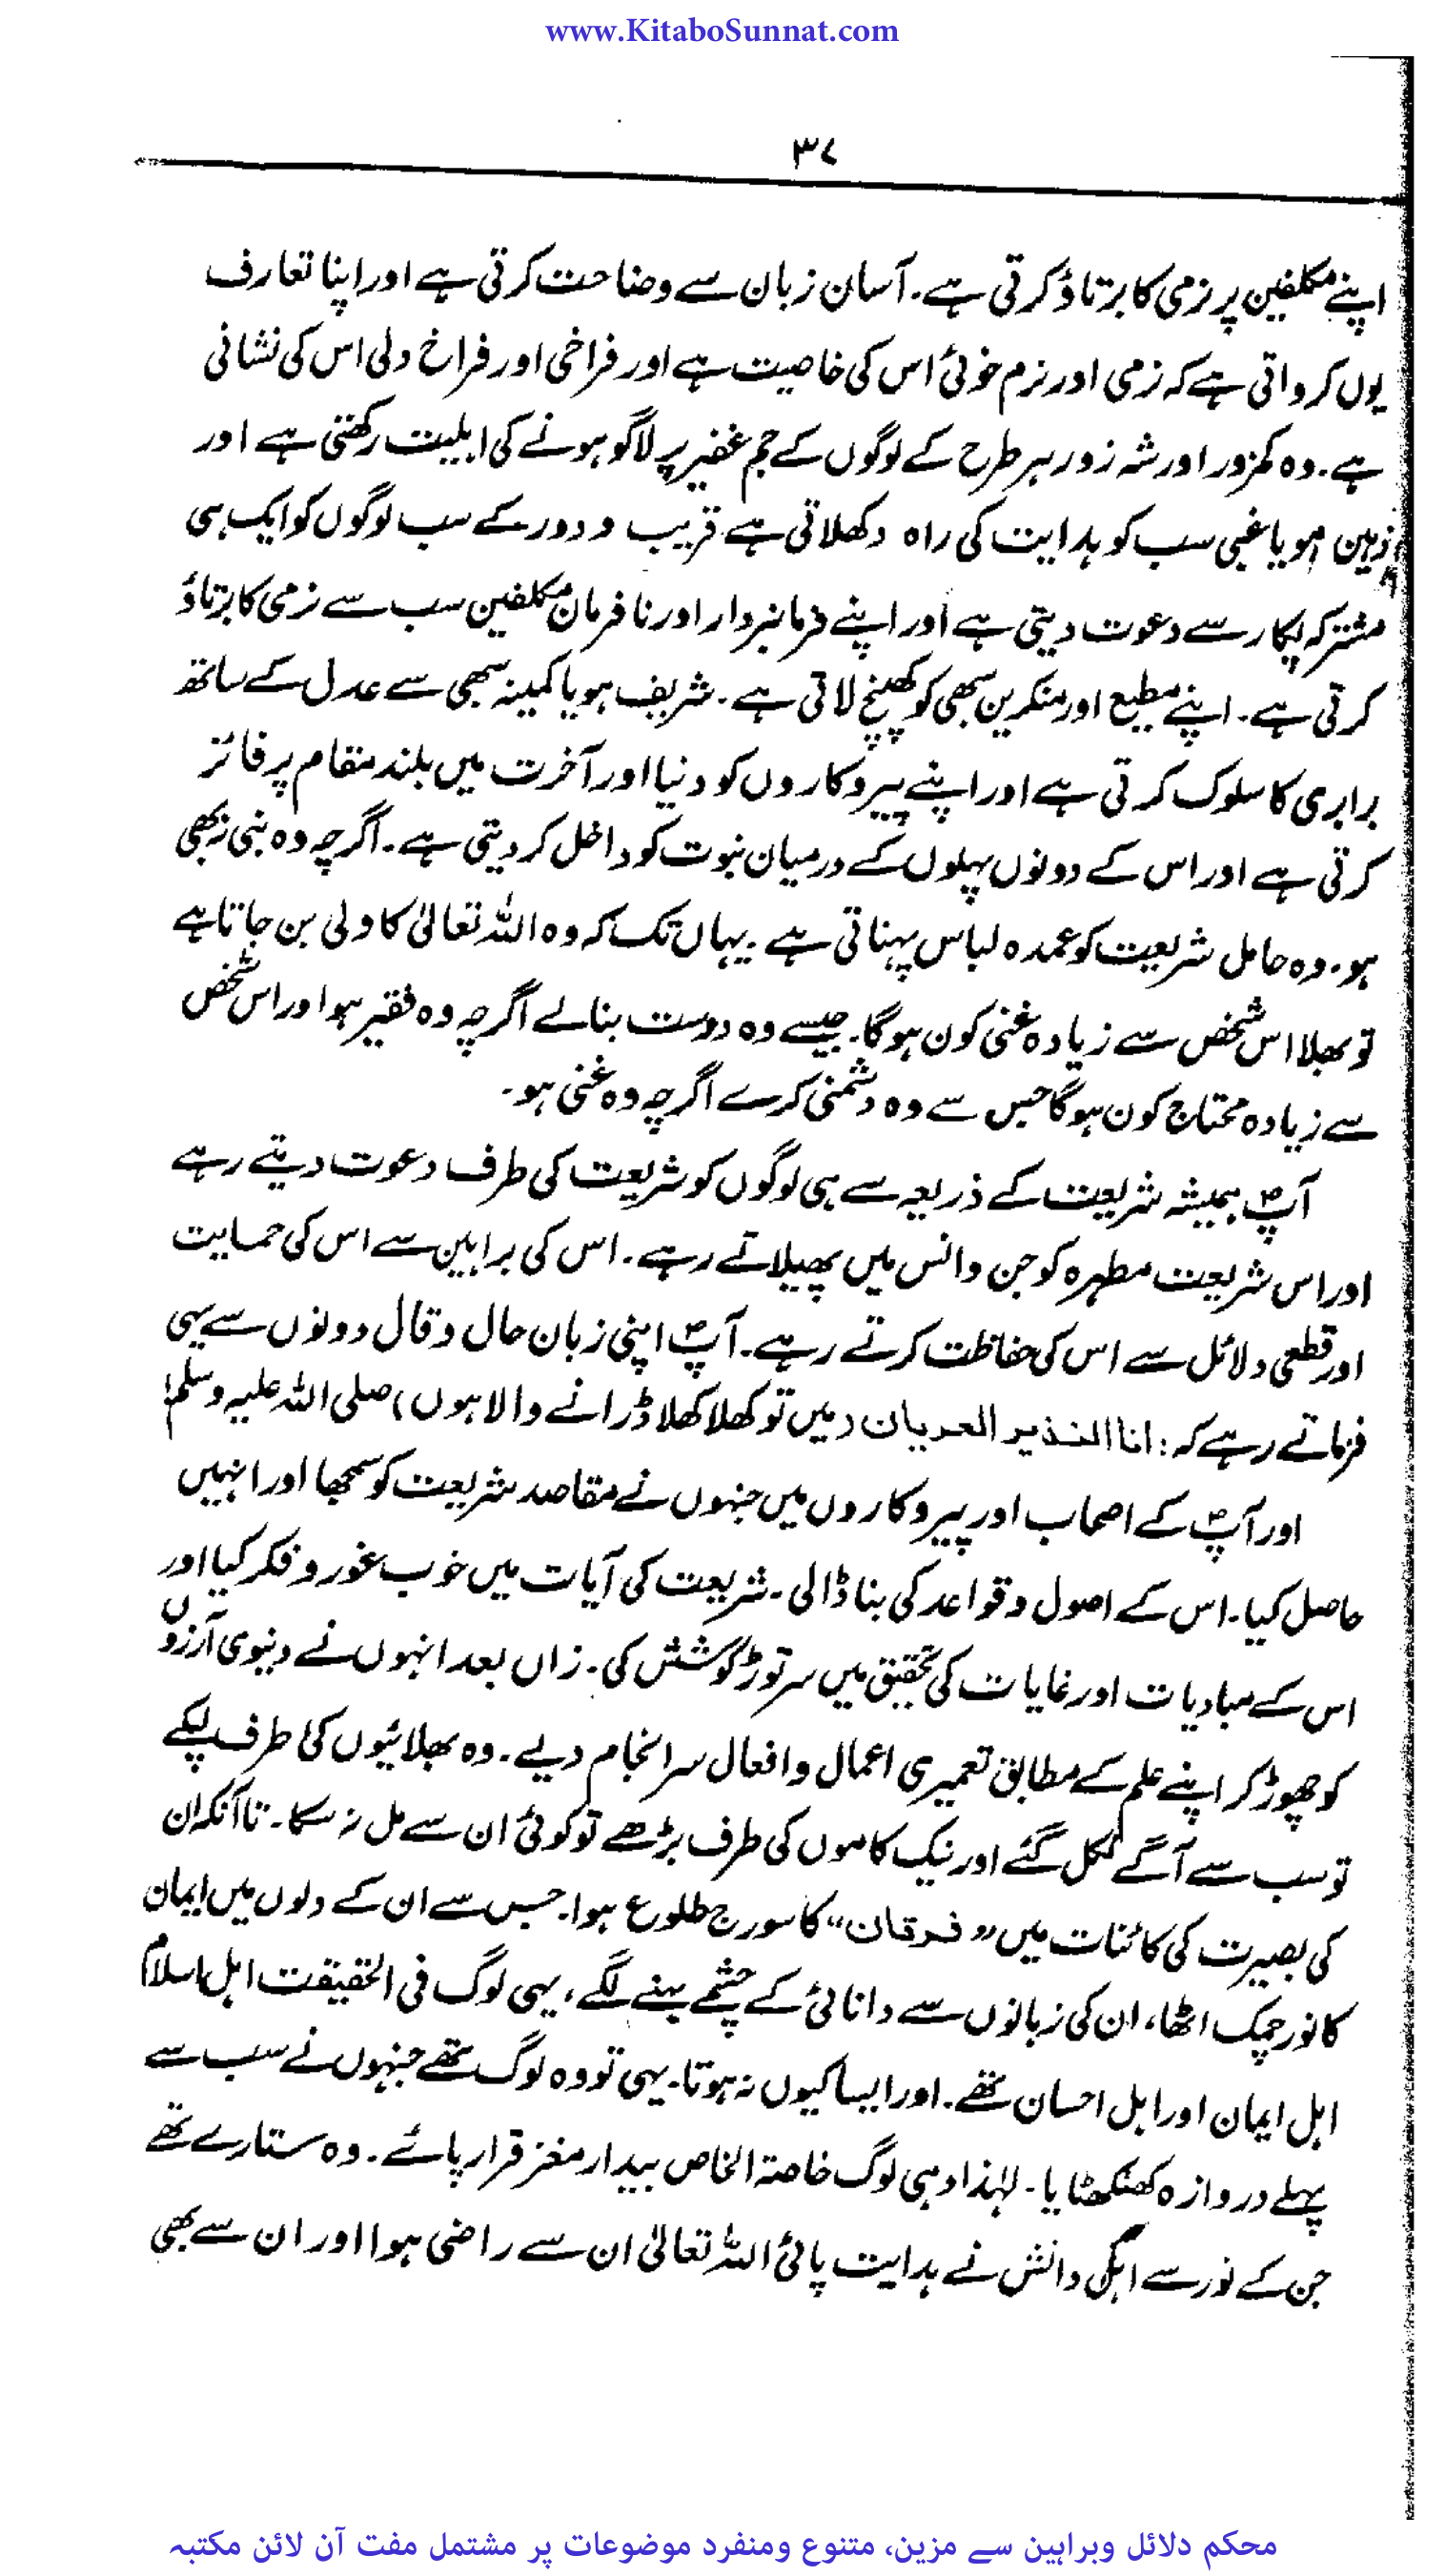 www.KitaboSunnat.com
۳۷
اپنے مکلفین پر نرمی کا برتاؤ کرتی ہے۔ آسان زبان سے وضاحت کرتی ہے اور اپنا تعارف
یوں کرواتی ہے کہ نرمی اور نرم خوئی اس کی خاصیت ہے اور فراخی اور فراخ دلی اس کی نشانی
ہے۔ وہ کمزور اور شہ زور ہر طرح کے لوگوں کے جم غفیر پر لاگو ہونے کی اہلیت رکھتی ہے اور
ذہین ہو یا غبی سب کو ہدایت کی راہ دکھلاتی ہے قریب و دور کے سب لوگوں کو ایک ہی
مشترکہ پکار سے دعوت دیتی ہے اور اپنے فرمانبردار اور نافرمان مکلفین سب سے نرمی کا برتاؤ
کرتی ہے۔ اپنے مطیع اور منکرین سبھی کو کھینچ لاتی ہے۔ شریف ہو یا کمینہ سبھی سے عدل کے ساتھ
برابری کا سلوک کرتی ہے اور اپنے پیروکاروں کو دنیا اور آخرت میں بلند مقام پر فائز
کرتی ہے اور اس کے دونوں پہلوں کے درمیان نبوت کو داخل کر دیتی ہے۔ اگرچہ وہ نبی نہ بھی
ہو۔ وہ حامل شریعت کو عمدہ لباس پہناتی ہے۔ یہاں تک کہ وہ اللہ تعالیٰ کا ولی بن جاتا ہے
تو بھلا اس شخص سے زیادہ غنی کون ہوگا۔ جیسے وہ دوست بنالے اگرچہ وہ فقیر ہو اور اس شخص
سے زیادہ محتاج کون ہوگا جس سے وہ دشمنی کرے اگرچہ وہ غنی ہو۔
آپؐ ہمیشہ شریعت کے ذریعہ سے ہی لوگوں کو شریعت کی طرف دعوت دیتے رہے
اور اس شریعت مطہرہ کو جن و انس میں پھیلاتے رہے۔ اس کی براہین سے اس کی حمایت
اور قطعی دلائل سے اس کی حفاظت کرتے رہے۔ آپؐ اپنی زبان حال و قال دونوں سے یہی
فرماتے رہے کہ: انا النذیر العریان (میں تو کھلا کھلا ڈرانے والا ہوں) صلی اللہ علیہ وسلم!
اور آپؐ کے اصحاب اور پیروکاروں میں جنہوں نے مقاصد شریعت کو سمجھا اور انہیں
حاصل کیا۔ اس کے اصول و قواعد کی بنا ڈالی۔ شریعت کی آیات میں خوب غور و فکر کیا اور
اس کے مبادیات اور غایات کی تحقیق میں سر توڑ کوشش کی۔ زاں بعد انہوں نے دنیوی آرزؤں
کو چھوڑ کر اپنے علم کے مطابق تعمیری اعمال و افعال سرانجام دیے۔ وہ بھلائیوں کی طرف لپکے
تو سب سے آگے نکل گئے اور نیک کاموں کی طرف بڑھے تو کوئی ان سے مل نہ سکا۔ تاآنکہ ان
کی بصیرت کی کائنات میں ”فرقان“ کا سورج طلوع ہوا۔ جس سے ان کے دلوں میں ایمان
کا نور چمک اٹھا، ان کی زبانوں سے دانائی کے چشمے بہنے لگے، یہی لوگ فی الحقیقت اہل اسلام
اہل ایمان اور اہل احسان تھے۔ اور ایسا کیوں نہ ہوتا۔ یہی تو وہ لوگ تھے جنہوں نے سب سے
پہلے دروازہ کھٹکھٹایا۔ لہٰذا وہی لوگ خاصۃ الخاص بیدار مغز قرار پائے۔ وہ ستارے تھے
جن کے نور سے اہل دانش نے ہدایت پائی اللہ تعالیٰ ان سے راضی ہوا اور ان سے بھی
محکم دلائل وبراہین سے مزین، متنوع ومنفرد موضوعات پر مشتمل مفت آن لائن مکتبہ